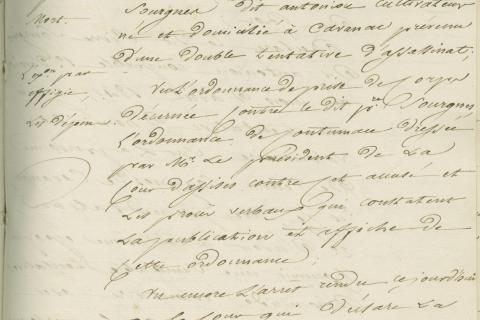 Sourgnes dit antoine cultivateur
Mort.
né et domicilié à Cavanac prévenu
d'une double tentative d'assassinat,
par
effigie,
Vu L'ordonnance de prise de Corps
Décernée contre le dit Sourgnes
Les Dépens.
L'ordonnance de Contumace dressée
par Mr. Le président de La
Cour d'assises contre cet accusé et
Les procès verbaux qui constatent
La publication et affiche de
Cette ordonnance;
Vu encore L'arret rendu cejourd'hui
La Cour qui Déclare La